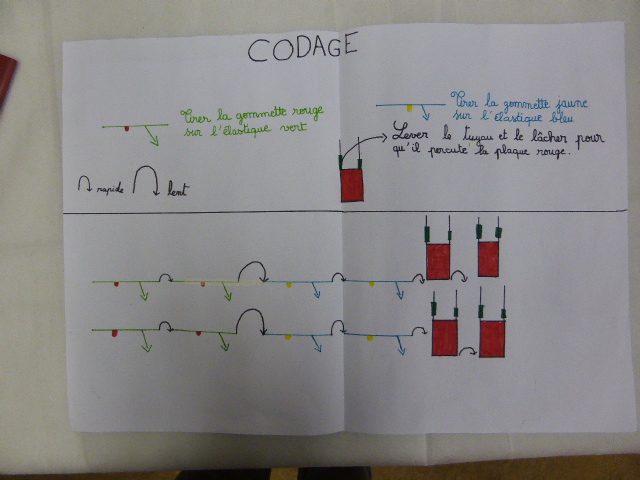 CODAGE
Tirer la gommette rouge
sur l'élastique vert
Tirer la gommette jaune
sur l'élastique bleu
Lever le tuyau et le lâcher pour
qu'il percute la plaque rouge.
rapide
lent